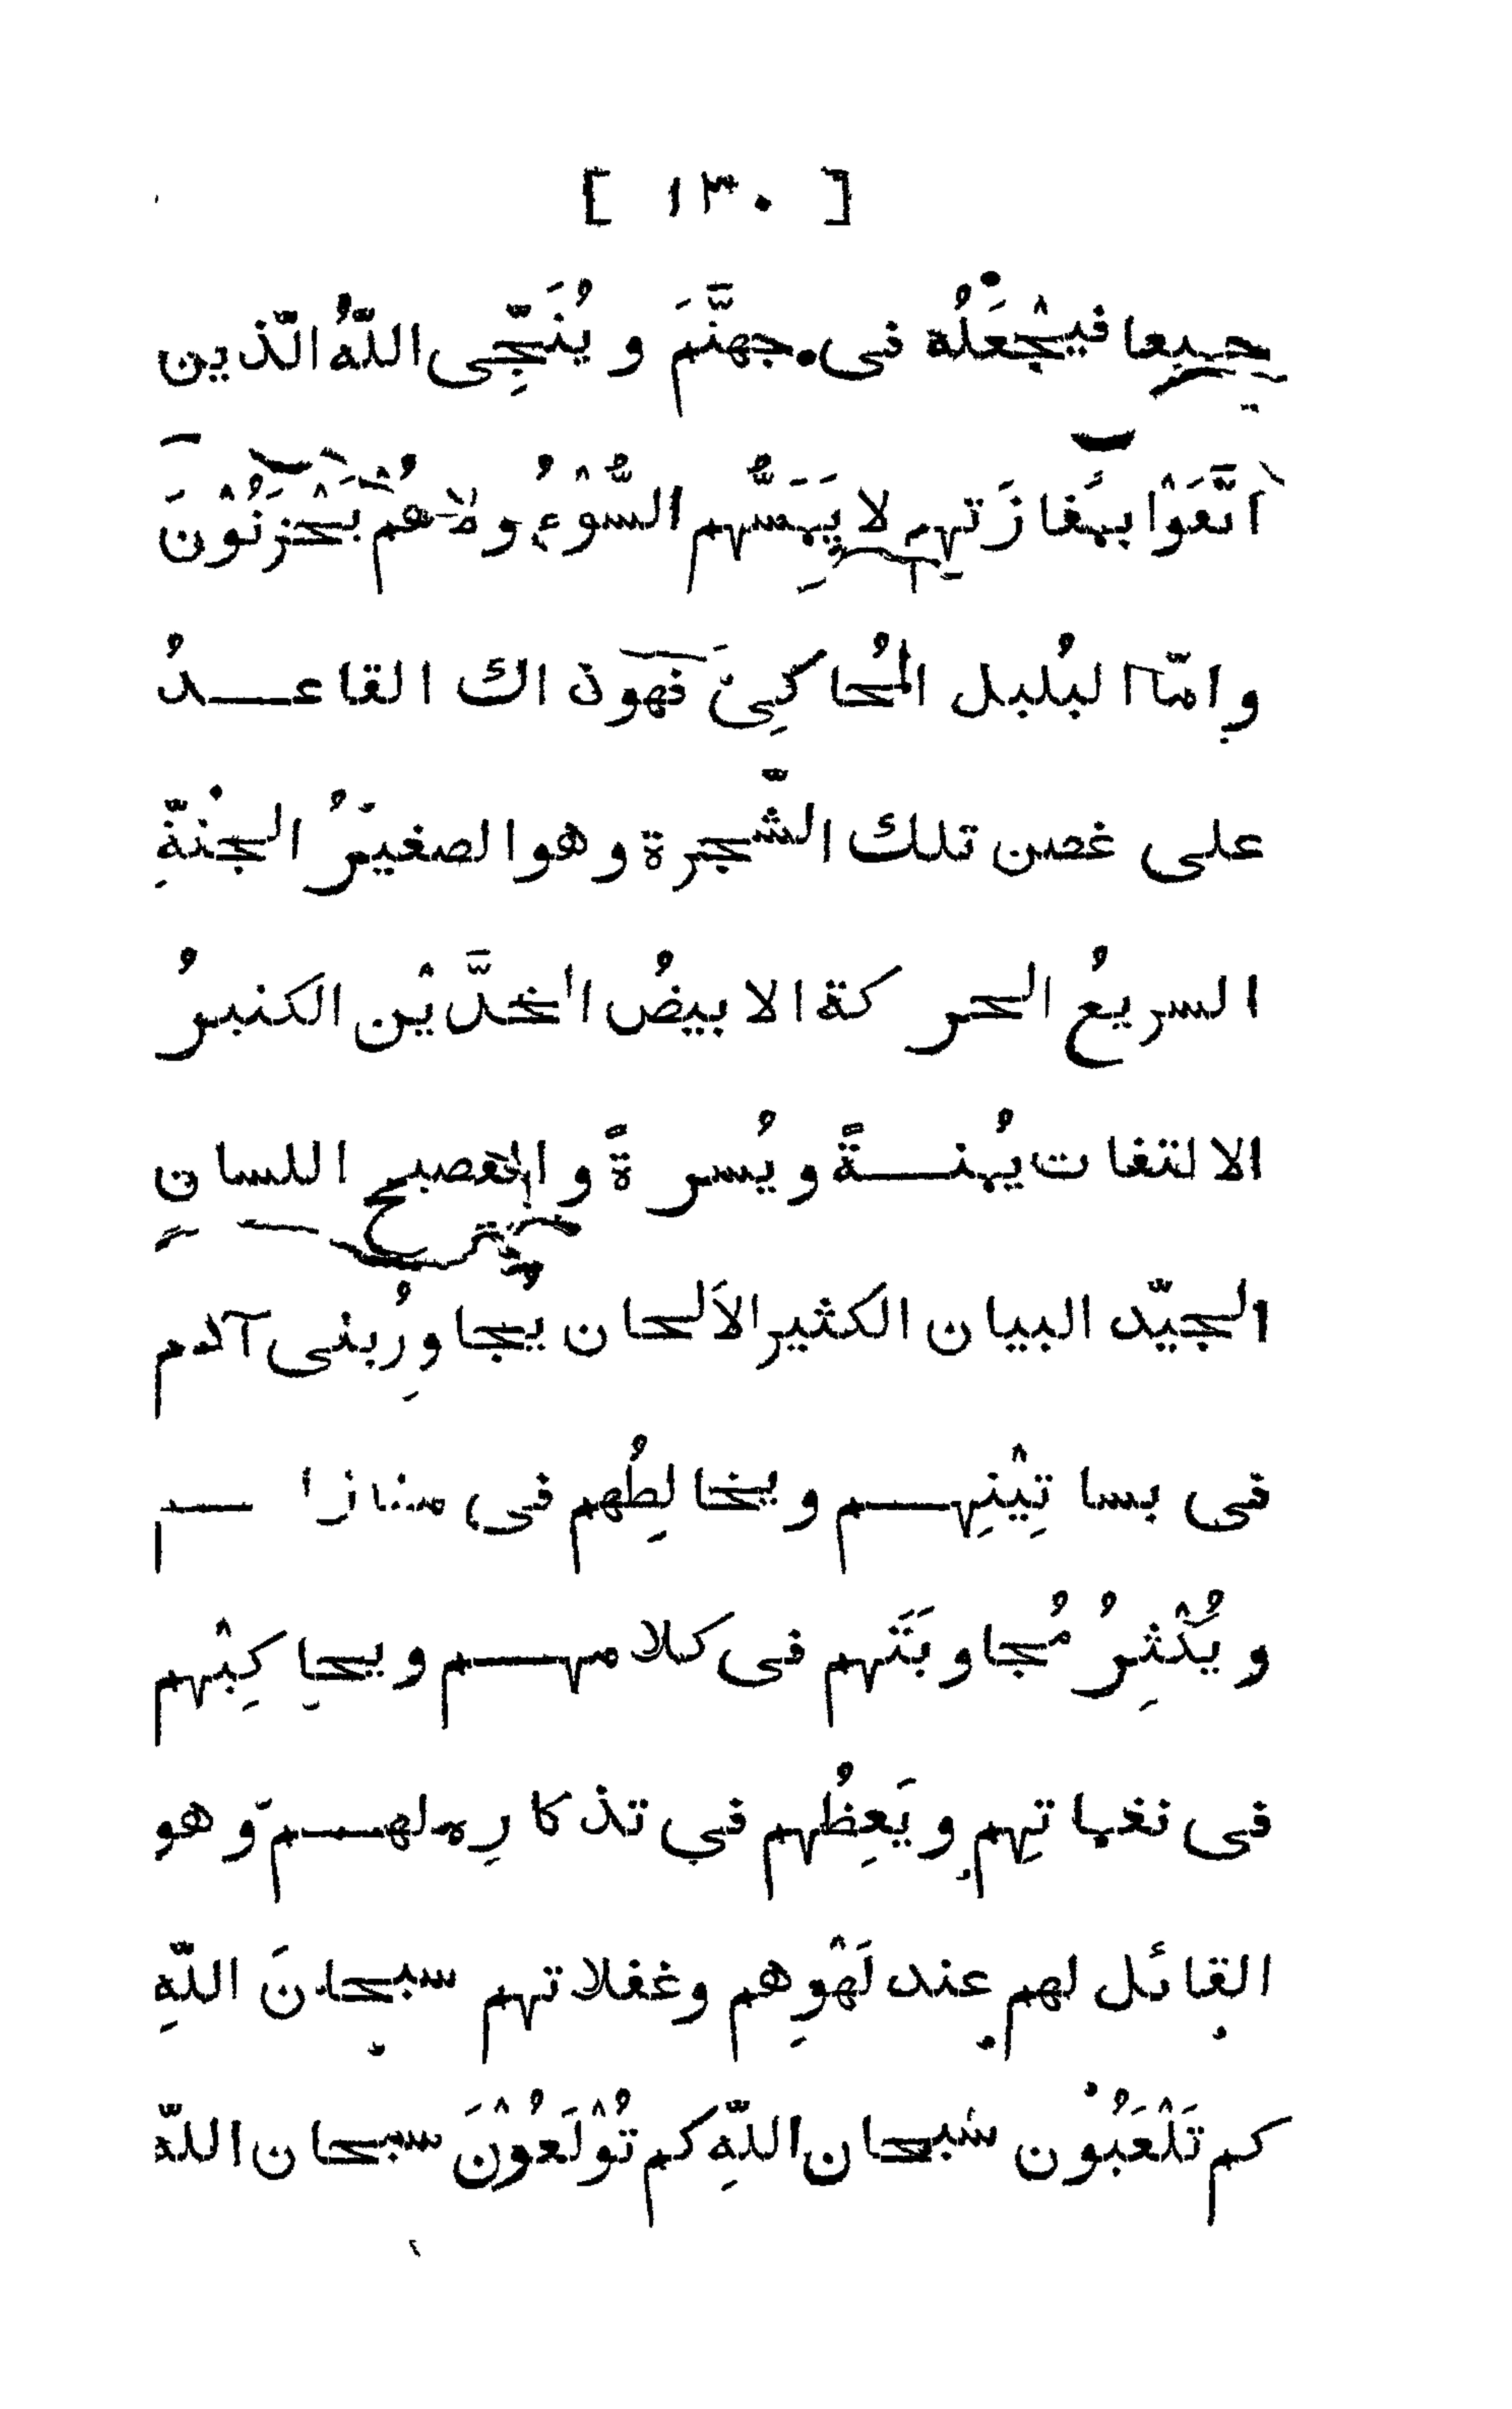 [ ١٣٠ ]
جميعا فيجْعَلُه فى جهنَّمَ و يُنَجِّى اللّهُ الّذين
اتَّقَوْا بمَفازَتهم لا يَمَسُّهم السُّوْءُ ولا هُمْ يَحْزَنُوْنَ
وامّا البُلبل المُحاكِىَ فهو ذاك القاعــدُ
على غصن تلك الشّجرة وهو الصغيَرُ الجُثّةِ
السريعُ الحركة الابيضُ الخدَّيْن الكثيرُ
الالتفات يُمنــةً ويُسرةً والفصيح اللسانِ
الجيّد البيان الكثير الاَلحان يُجاوِرُ بنى آدم
فى بساتِيْنِهــم ويخالِطُهم فى منازلــهم
ويُكْثِرُ مُجاوبَتَهم فى كلامهــم ويحاكِيْهم
فى نغماتِهم ويَعِظُهم فى تذكارِه لهــم وهو
القائل لهم عند لَهْوِهم وغفلاتهم سبحانَ اللّهِ
كم تَلْعَبُون سُبحان اللّهِ كم تُوْلَعُوْنَ سبحان اللّه